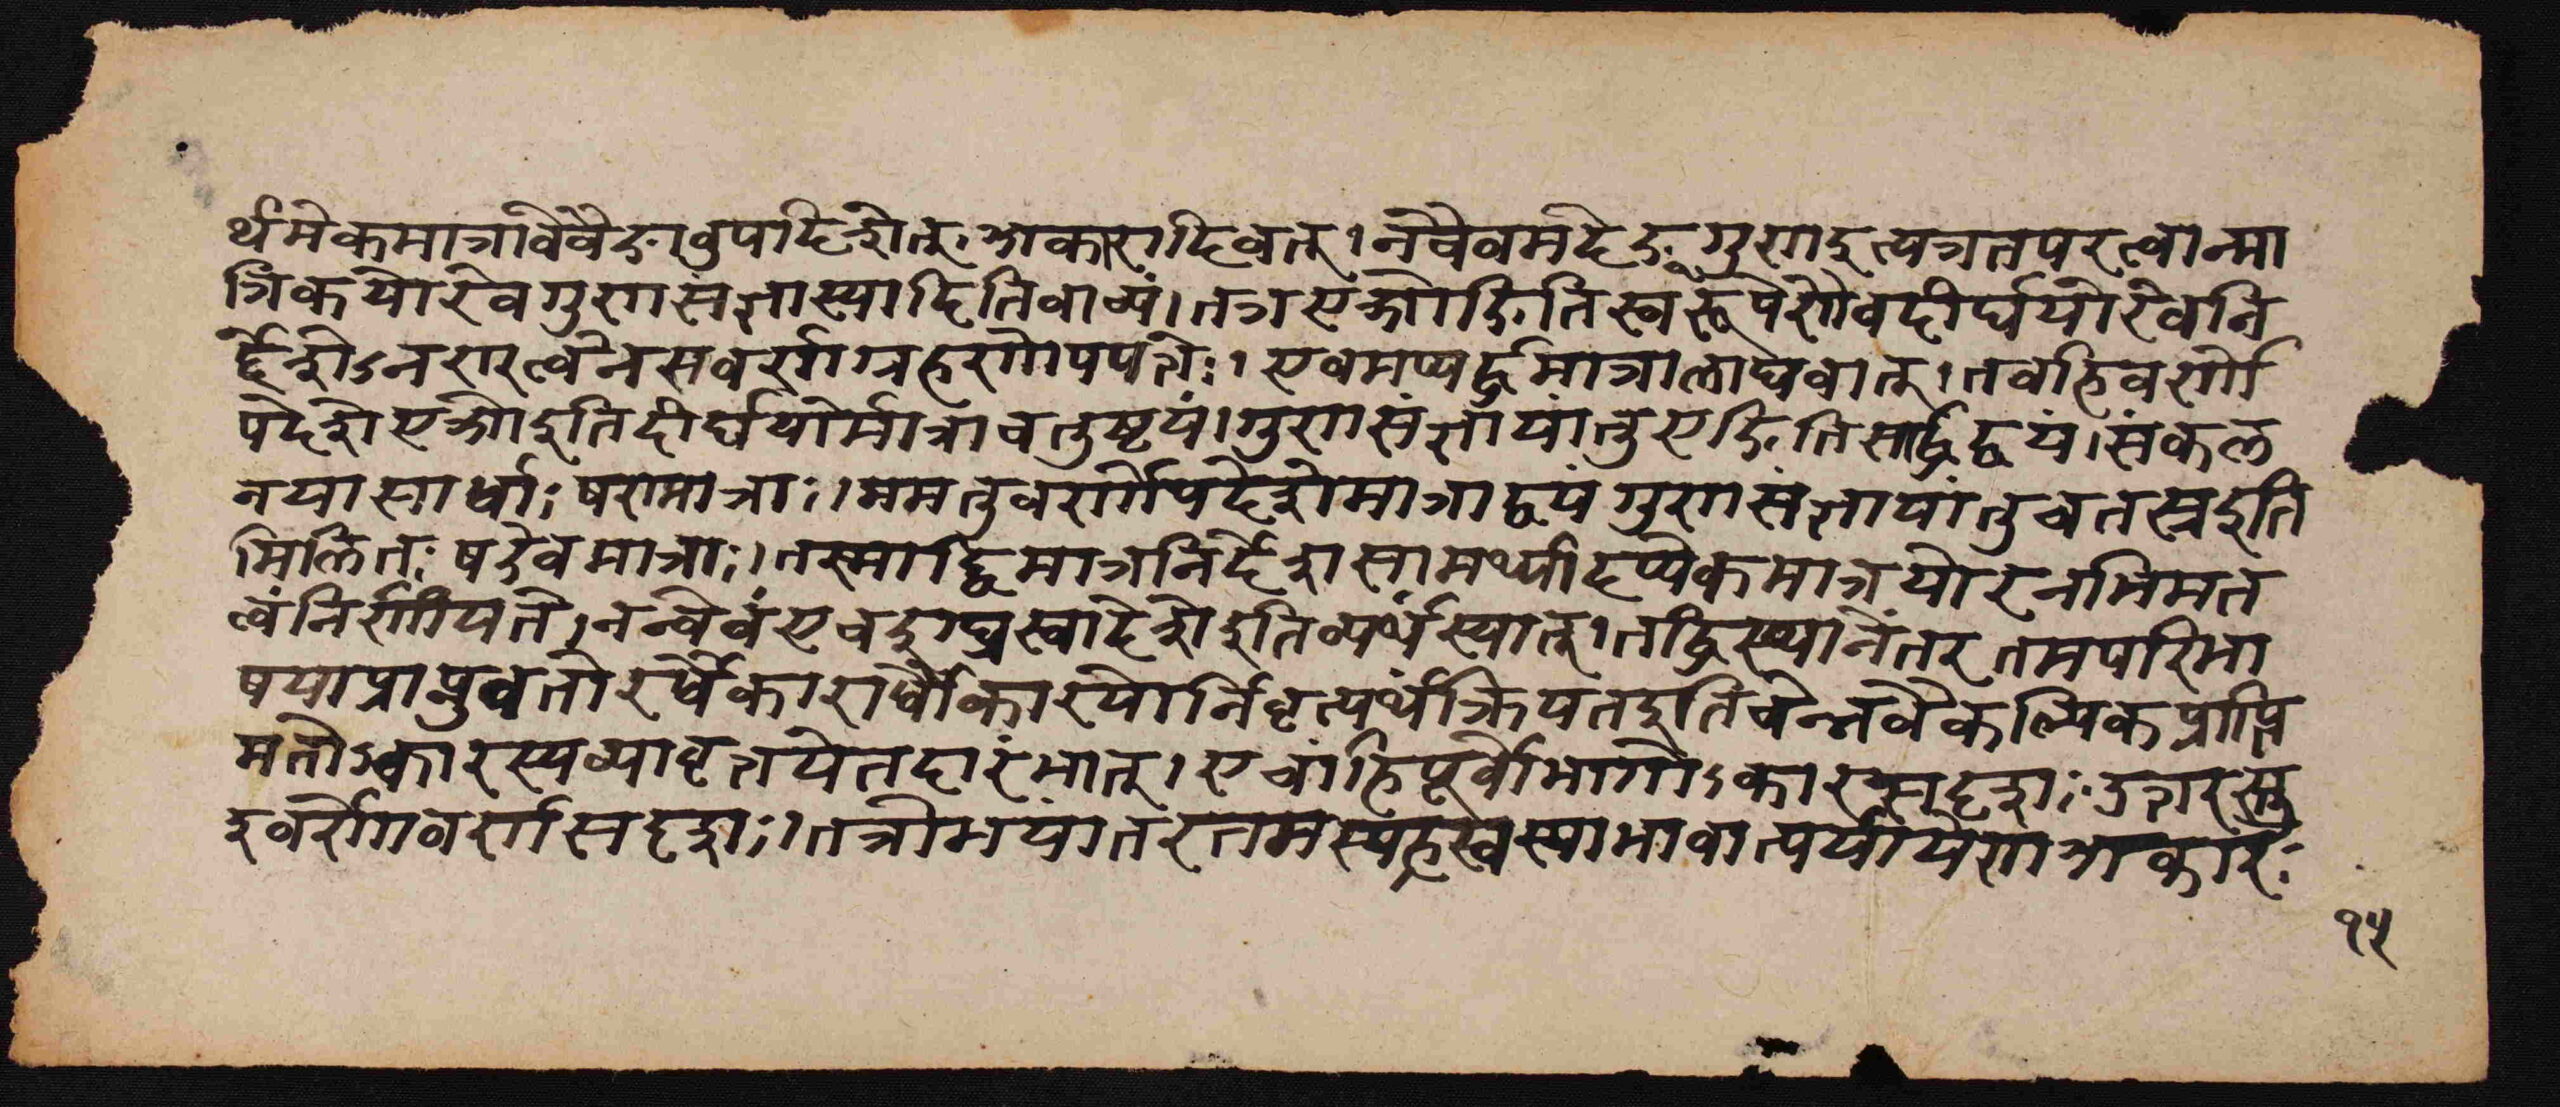 र्थमेकमात्रावेवैङावुपदिशेत् अकारादिवत् । नचैवमदेङ् गुणइत्यत्रतपरत्वान्मा
त्रिकयोरेवगुणसंज्ञास्यादितिवाच्यं । तत्र एओङितिस्वरूपेणैवदीर्घयोरेवनि
र्द्देशेऽनण्त्वेनसवर्णाग्रहणोपपत्तेः । एवमप्यर्द्धमात्रालाघवात् । तवहिवर्णो
पदेशे एओइतिदीर्घयोर्मात्राचतुष्टयं । गुणसंज्ञायांतुएङितिसार्द्धद्वयं । संकल
नयासार्धाः षण्मात्राः । ममतुवर्णोपदेशेमात्राद्वयं गुणसंज्ञायांतुचतस्रइति
मिलितः षडेवमात्राः । तस्माद्द्विमात्रनिर्देशसामर्थ्यादप्येकमात्रयोरनभिमत
त्वंनिर्णीयते । नन्वेवं एचइग्घ्रस्वादेशेइतिव्यर्थंस्यात् । तद्धिस्थानेंतरतमपरिभा
षयाप्राप्नुवतोरर्धैकारार्धौकारयोर्निवृत्यर्थंक्रियतइतिचेन्नवैकल्पिकप्राप्ति
मतोऽकारस्यव्यावृत्तयेतदारंभात् । एचांहिपूर्वोभागोऽकारसदृशः उत्तरस्तु
इवर्णोवर्णसदृशः । तत्रोभयांतरतमस्यह्रस्वस्याभावात्पर्यायेणअकारः
१५